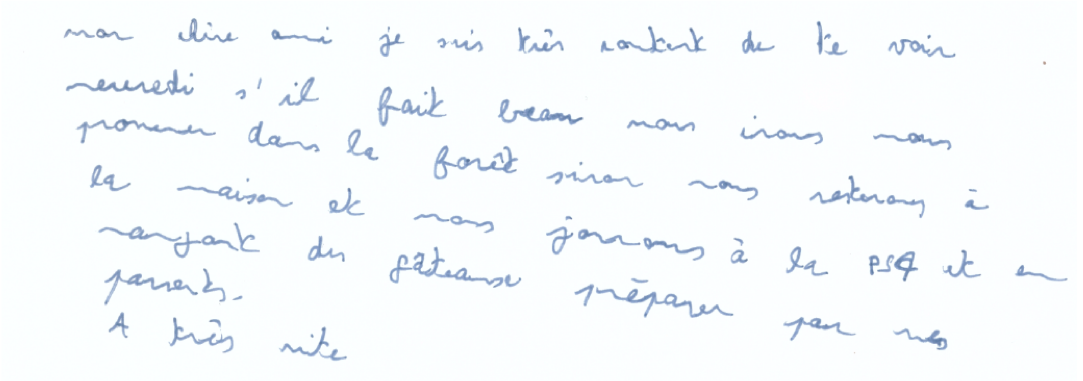 mon chire ami je suis très content de te voir
mercredi s'il fait beau nous irons nous
promener dans la forêt sinon nous resterons à
la maison et nous jourons à la PS4 et en
mangant des gâteause préparer par mes
parents.
A très vite